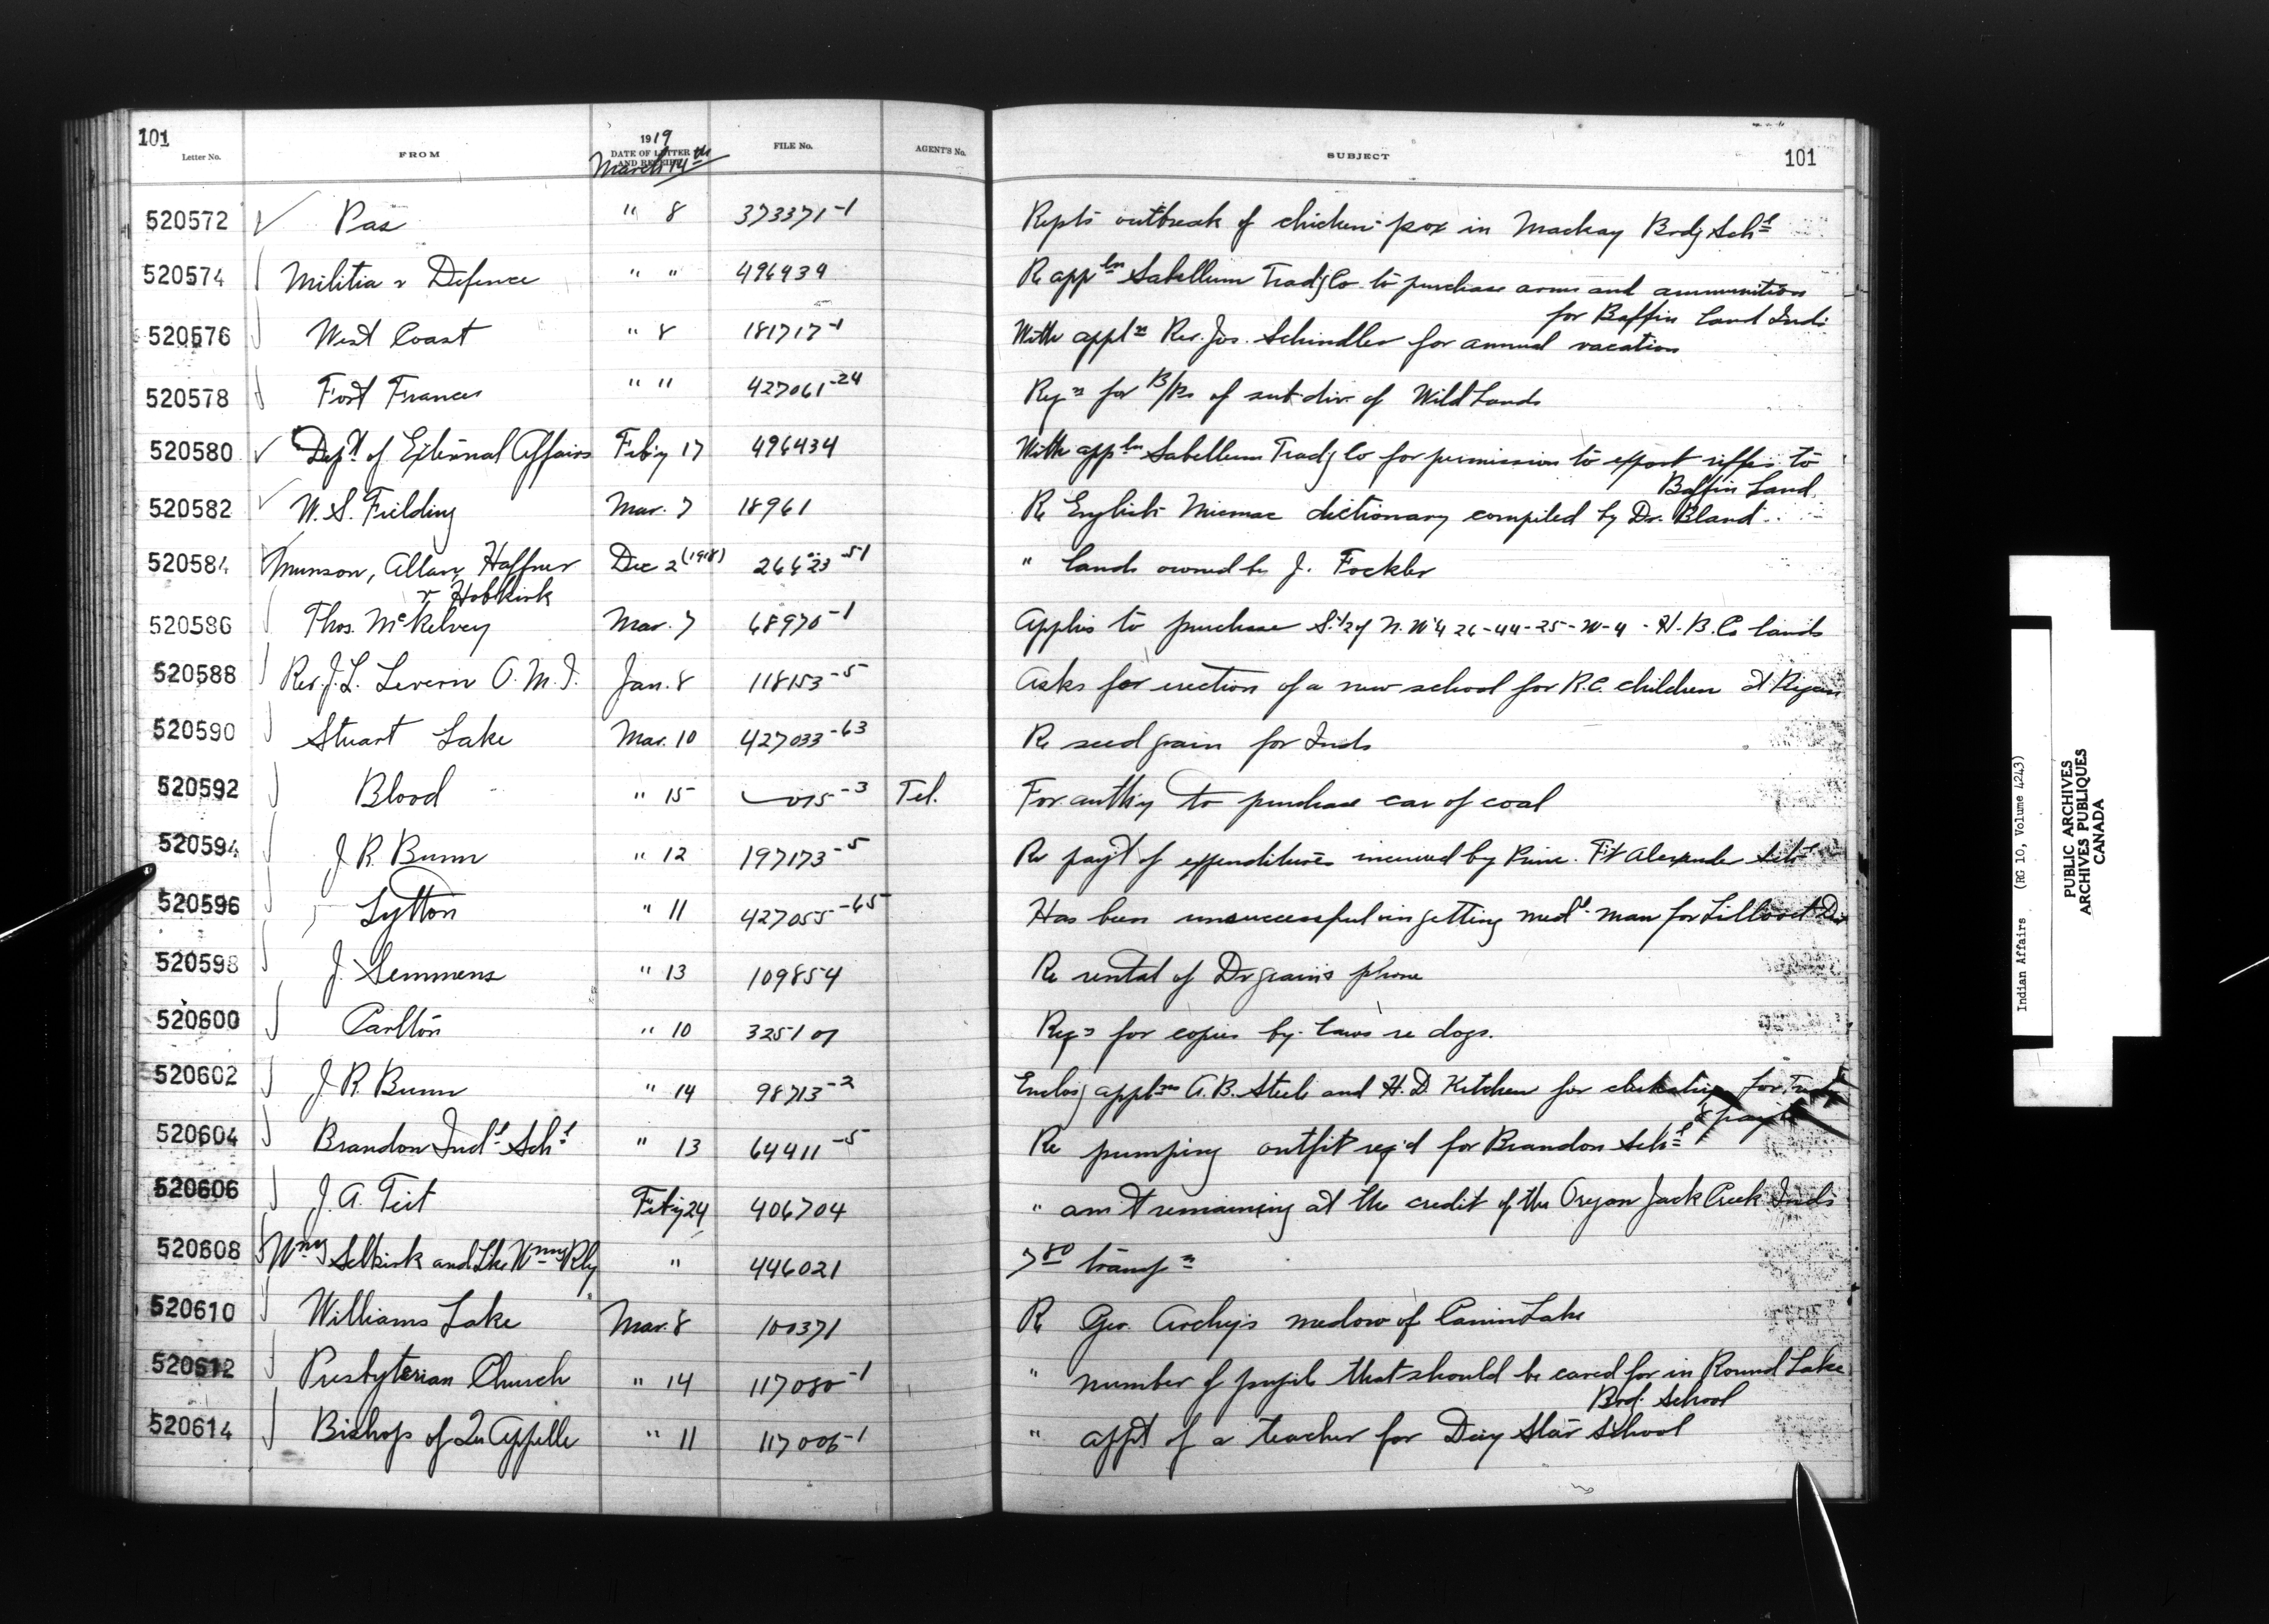 101
Letter No. FROM 1919 DATE OF LETTER AND RECEIPT March 14th FILE No. AGENT'S No. SUBJECT 101
520572 Pas " 8 373371-1 Repts outbreak of chicken-pox in Mackay Brdg Schl
520574 Militia & Defence " " 496434 Re appln Sabellum Tradg Co to purchase arms and ammunition
for Baffin Land Inds
520576 West Coast " 8 181717-1 With appln Rev. Jos. Schindler for annual vacation
520578 Fort Frances " " 427061-24 Reqn for B/Ps of sub-div of Wild Lands
520580 Dept of External Affairs Feby 17 496434 With appln Sabellum Tradg Co for permission to export rifles to
Baffin Land
520582 W. S. Fielding Mar. 7 18961 Re English Micmac dictionary compiled by Dr. Bland
520584 Munson, Allan, Haffner Dec 2 (1918) 26623-51 " lands owned by J. Fockler
& Hobkirk
520586 Thos. McKelvey Mar. 7 68970-1 Applies to purchase S.1/2 of N.W 1/4 26-44-25-W-4 - H.B. Co lands
520588 Rev. J. L. Levern O.M.I. Jan. 8 118153-5 Asks for erection of a new school for R.C. children at
520590 Stuart Lake Mar. 10 427033-63 Re seed grain for Inds
520592 Blood " 15 015-3 Tel. For authy to purchase car of coal
520594 J. R. Bunn " 12 197173-5 Re payt of expenditures incurred by Princ. Ft Alexander Schl
520596 Lytton " 11 427055-65 Has been unsuccessful in getting medl man for Lillooet Dis
520598 J. Semmens " 13 109854 Re rental of Dr grain's phone
520600 Carlton " 10 325107 Reqn for copies by-laws re dogs.
520602 J. R. Bunn " 14 98713-2 Enclosg applns A. B. Steele and H. D. Kitchen for clerkship for
& payt
520604 Brandon Indl Schl " 13 64411-5 Re pumping outfit req'd for Brandon Schl
520606 J. A. Teit Feby 24 406704 " amt remaining at the credit of the Oregon Jack Creek Inds
520608 Wpg Selkirk and Lke Wpg Rly " 446021 7 80 transpn
520610 Williams Lake Mar. 8 100371 Re Geo. Archy's medow of Canim Lake
520612 Presbyterian Church " 14 117080-1 " number of pupils that should be cared for in Round Lake
Brd. School
520614 Bishop of Qu Appelle " 11 117006-1 " appt of a teacher for Day Star School
Indian Affairs (RG 10, Volume 4243)
PUBLIC ARCHIVES
ARCHIVES PUBLIQUES
CANADA